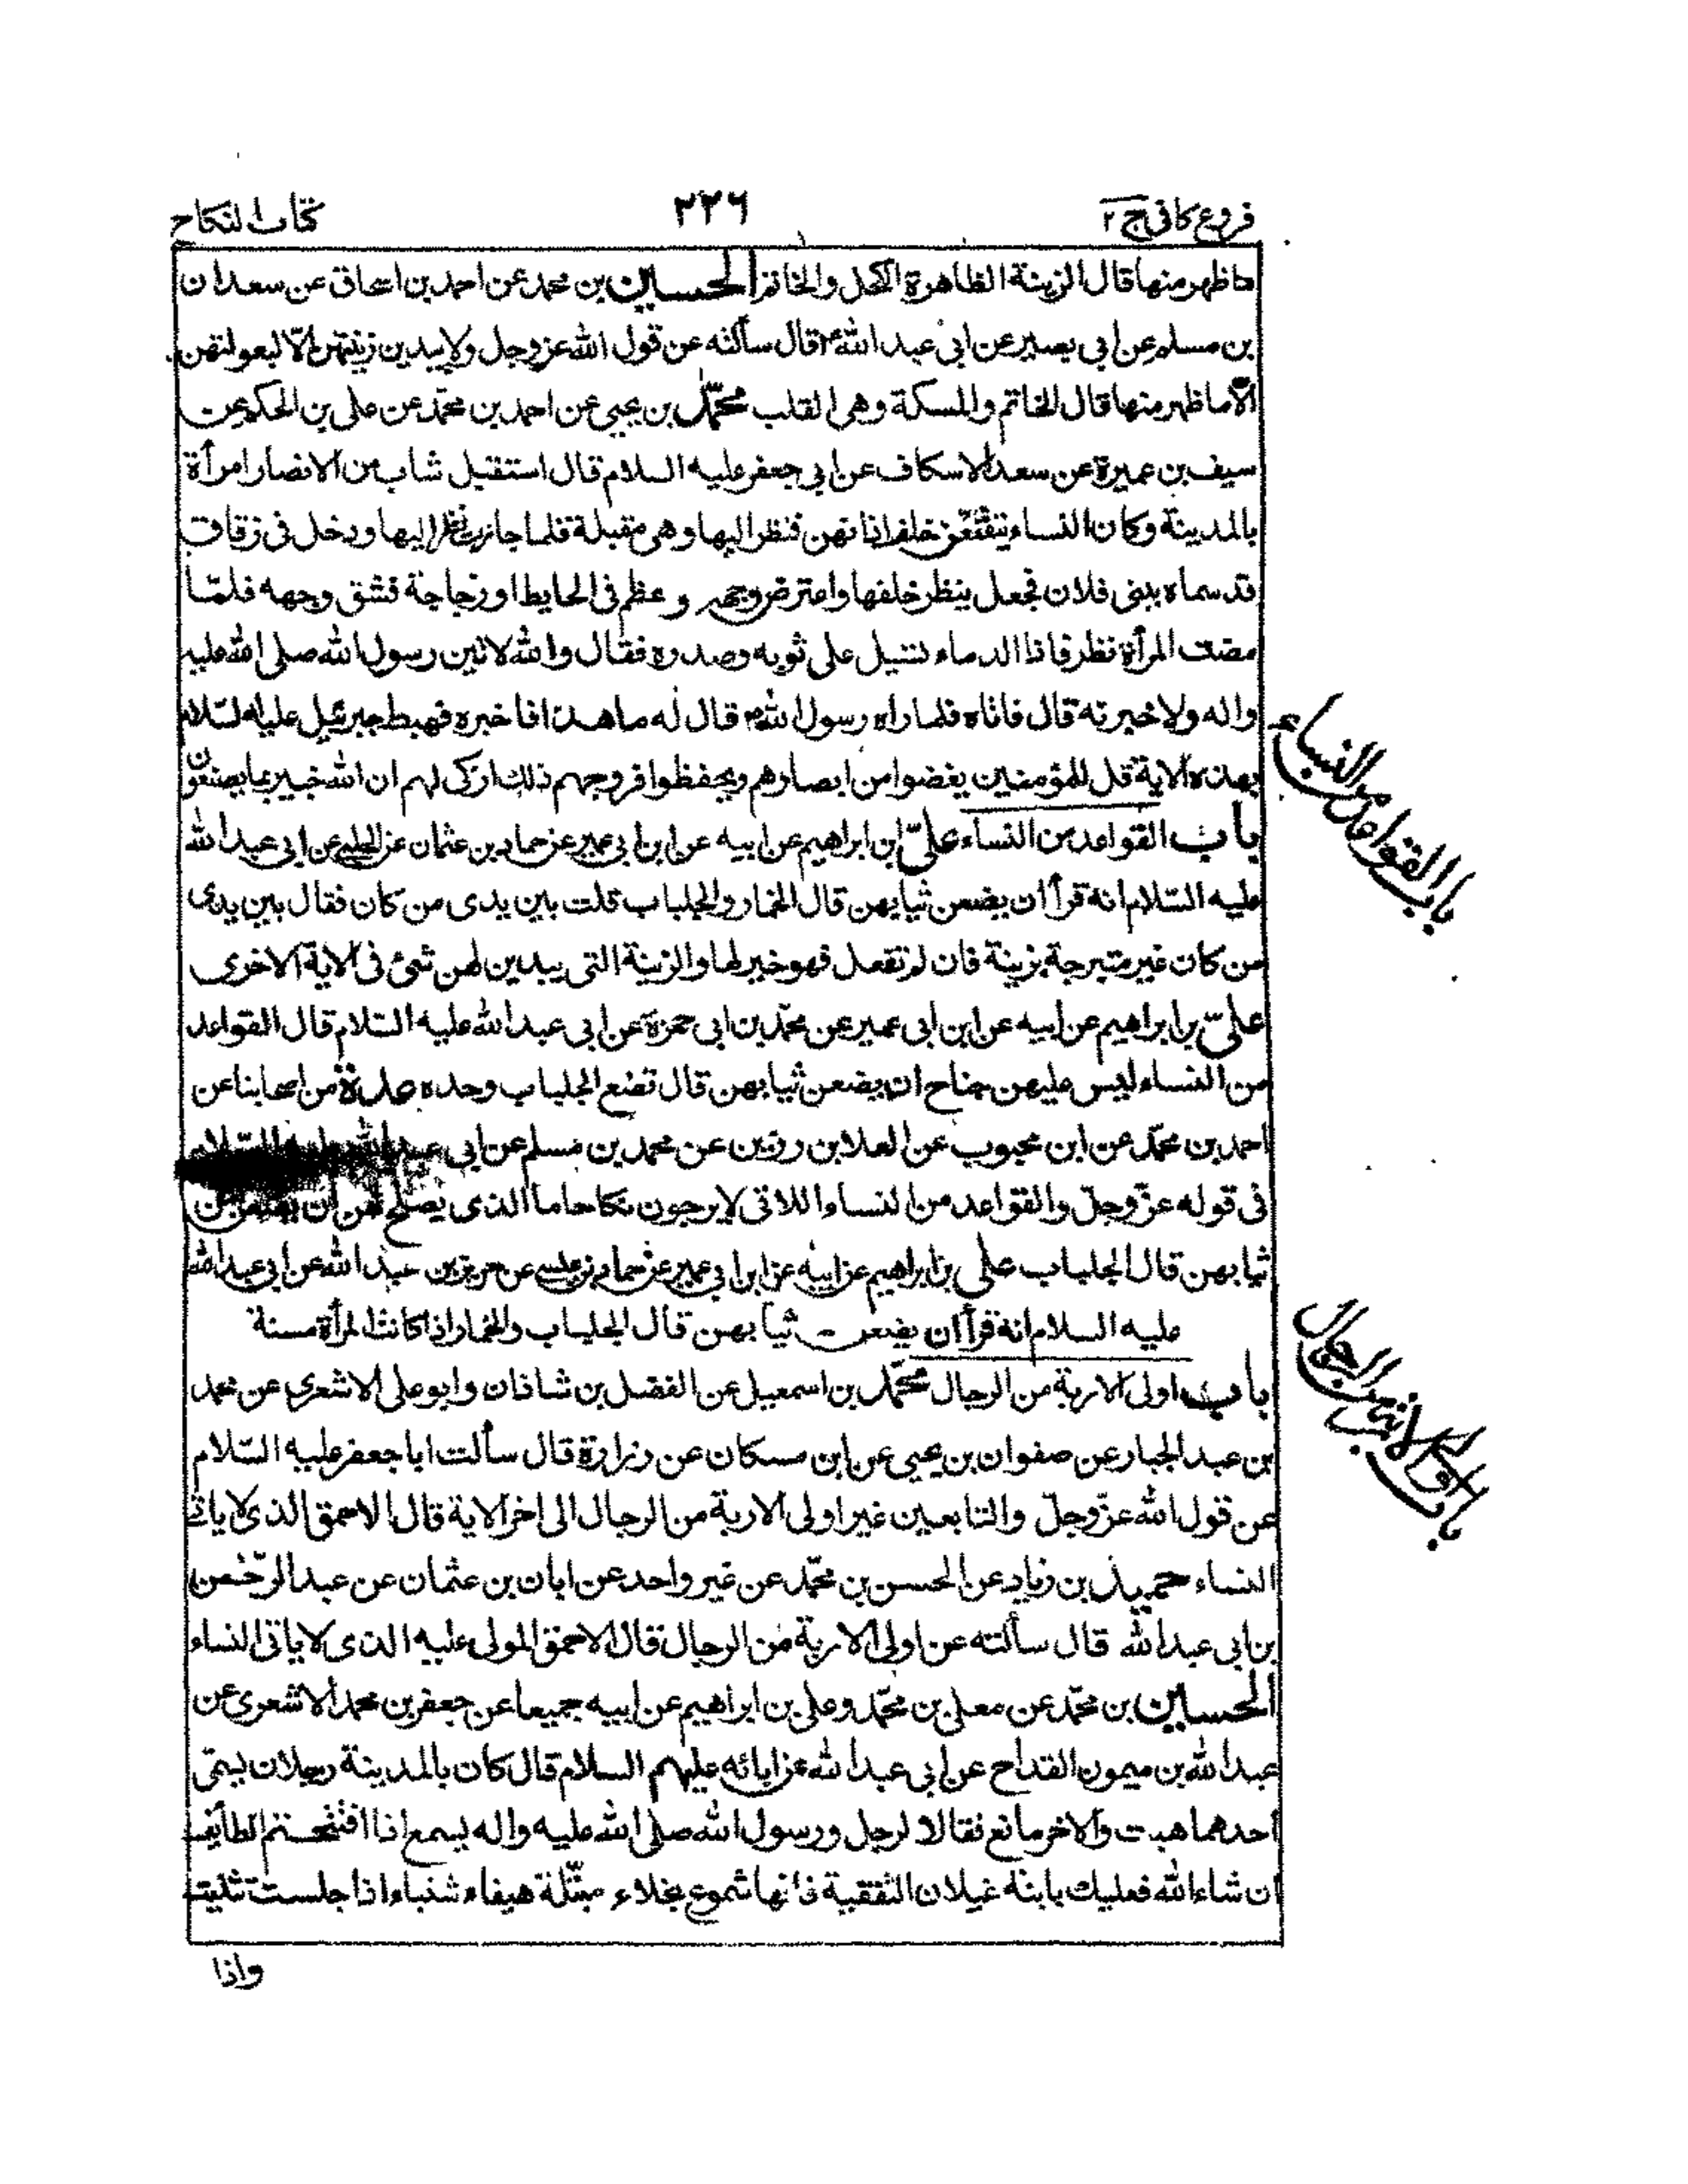 فروع كافى ج ٢
٢٢٦
كتاب النكاح
ما ظهر منها قال الزينة الظاهرة الكحل والخاتم الحسين بن محمد عن احمد بن اسحاق عن سعدان
بن مسلم عن ابى بصير عن ابى عبد الله ع قال سألته عن قول الله عز وجل ولا يبدين زينتهن الّا لبعولتهن
الّا ما ظهر منها قال الخاتم والمسكة وهى القلب محمّد بن يحيى عن احمد بن محمّد عن على بن الحكم عن
سيف بن عميرة عن سعد الاسكاف عن ابى جعفر عليه السلام قال استقبل شاب من الانصار امرأة
بالمدينة وكان النساء يتقنّعن خلف اذانهن فنظر اليها وهى مقبلة فلما جازت نظر اليها ودخل فى زقاق
قد سماه ببنى فلان فجعل ينظر خلفها واعترض وجهه وعظم فى الحايط او زجاجة فشق وجهه فلمّا
مضت المرأة نظر فاذا الدماء تسيل على ثوبه وصدره فقال والله لاتين رسول الله صلى الله عليه
واله ولاخبرنه قال فاتاه فلما راه رسول الله ص قال له ما هذا فاخبره فهبط جبرئيل عليه السّلام
بهذه الاية قل للمؤمنين يغضوا من ابصارهم ويحفظوا فروجهم ذلك ازكى لهم ان الله خبير بما يصنعون
باب القواعد من النساء علىّ بن ابراهيم عن ابيه عن ابن ابى عمير عن حماد بن عثمان عن الحلبى عن ابى عبد الله
عليه السّلام انه قرأ ان يضعن ثيابهن قال الخمار والجلباب قلت بين يدى من كان فقال بين يدى
من كان غير متبرجة بزينة فان لم تفعل فهو خير لها والزينة التى يبدين لهن شئ فى الاية الاخرى
علىّ بن ابراهيم عن ابيه عن ابن ابى عمير عن محمّد بن ابى حمزة عن ابى عبد الله عليه السّلام قال القواعد
من النساء ليس عليهن جناح ان يضعن ثيابهن قال تضع الجلباب وحده عدة من اصحابنا عن
احمد بن محمّد عن ابن محبوب عن العلا بن رزين عن محمد بن مسلم عن ابى عبد الله عليه السّلام
فى قوله عزّ وجلّ والقواعد من النساء اللاتى لا يرجون نكاحا ما الذى يصلح لهن ان يضعن من
ثيابهن قال الجلباب على بن ابراهيم عن ابيه عن ابن ابى عمير عن حماد بن عيسى عن حريز بن عبد الله عن ابى عبد الله
عليه السلام انه قرأ ان يضعن ثيابهن قال الجلباب والخمار اذا كانت المرأة مسنة
باب اولى الاربة من الرجال محمّد بن اسمعيل عن الفضل بن شاذان وابو على الاشعرى عن محمد
بن عبد الجبار عن صفوان بن يحيى عن ابن مسكان عن زرارة قال سألت ابا جعفر عليه السّلام
عن قول الله عزّ وجلّ والتابعين غير اولى الاربة من الرجال الى اخر الاية قال الاحمق الذى لا ياتى
النساء حميد بن زياد عن الحسن بن محمّد عن غير واحد عن ابان بن عثمان عن عبد الرّحمن
بن ابى عبد الله قال سألته عن اولى الاربة من الرجال قال الاحمق المولى عليه الذى لا ياتى النساء
الحسين بن محمّد عن معلى بن محمّد وعلى بن ابراهيم عن ابيه جميعا عن جعفر بن محمد الاشعرى عن
عبد الله بن ميمون القداح عن ابى عبد الله عن ابائه عليهم السلام قال كان بالمدينة رجلان يسمّى
احدهما هيت والاخر مانع فقالا لرجل ورسول الله صلى الله عليه واله يسمع اذا افتتحتم الطائف
ان شاء الله فعليك بابنة غيلان الثقفية فانها شموع بخلاء مبتّلة هيفاء شنباء اذا جلست تثنت
واذا
باب القواعد من النساء
باب اولى الاربة من الرجال